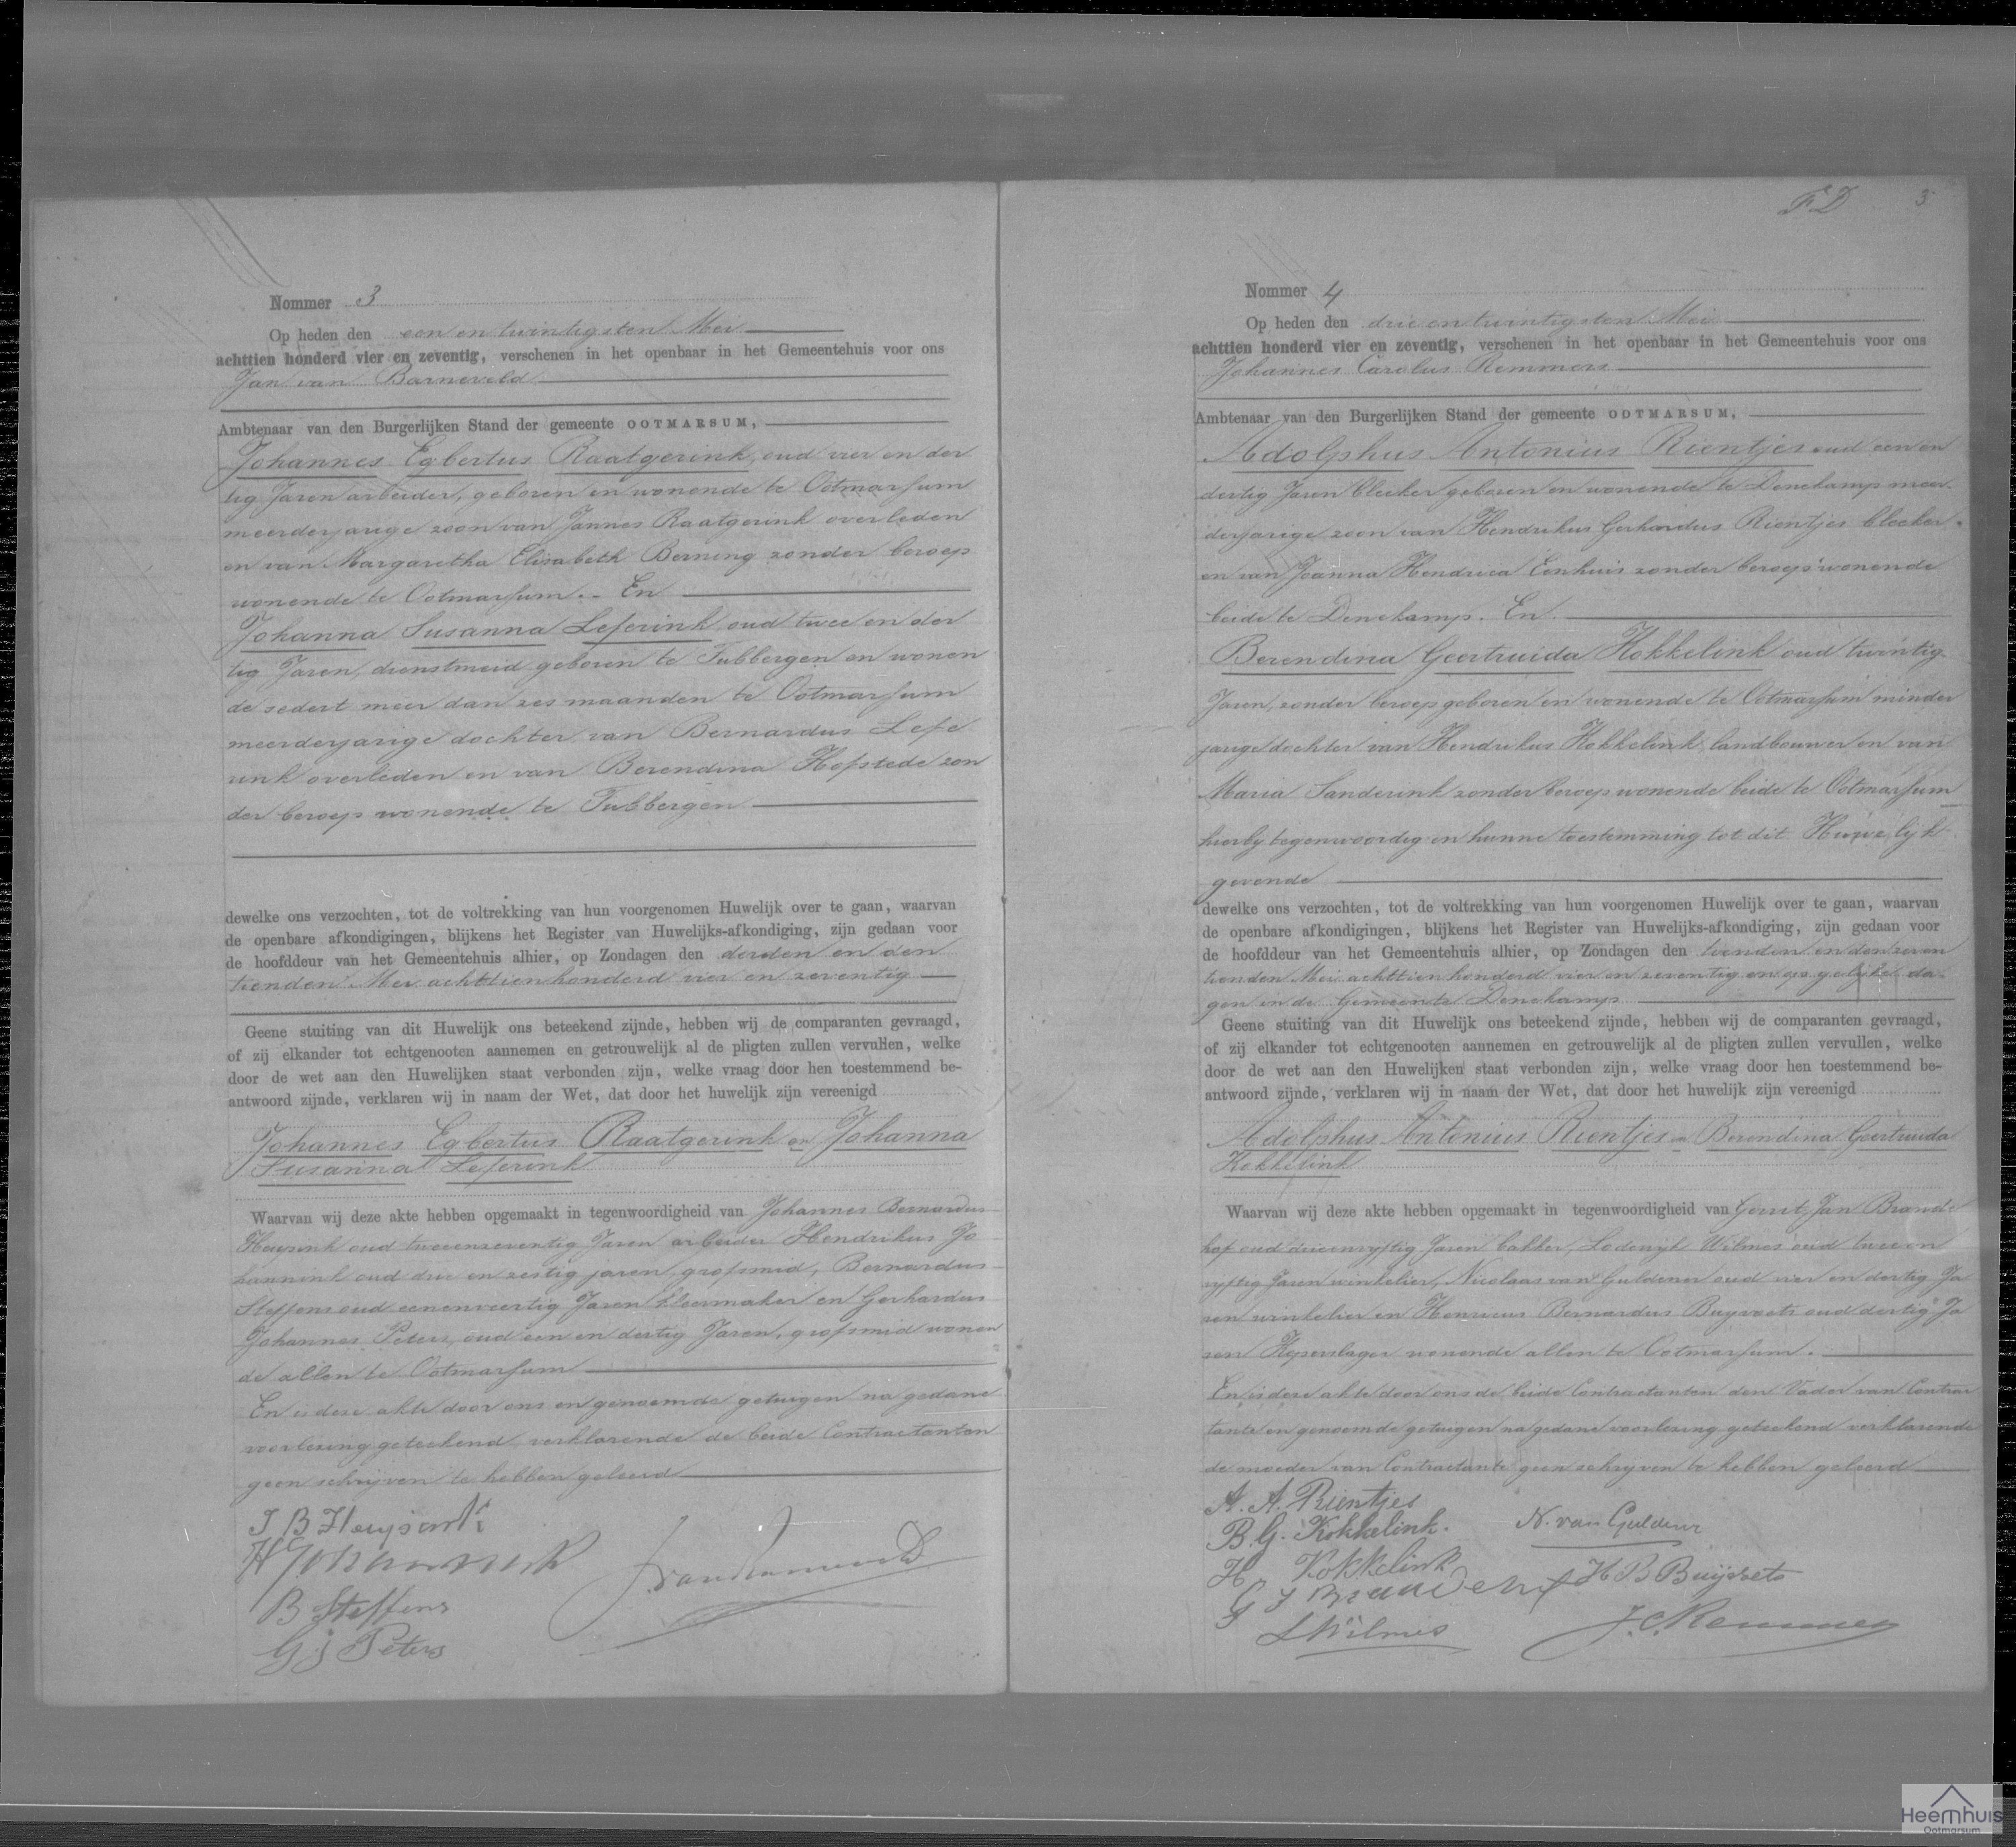 Nommer 3
Op heden den een en twintigsten Mei
achttien honderd vier en zeventig, verschenen in het openbaar in het Gemeentehuis voor ons
Jan van Barneveld
Ambtenaar van den Burgerlijken Stand der gemeente OOTMARSUM,
Johannes Egbertus Raatgerink, oud vier en der
tig Jaren arbeider, geboren en wonende te Ootmarsum
meerderjarige zoon van Jannes Raatgerink overleden
en van Margaretha Elisabeth Berning zonder beroep
wonende te Ootmarsum. En
Johanna Susanna Leferink, oud twee en der
tig Jaren, dienstmeid geboren te Tubbergen en wonen
de sedert meer dan zes maanden te Ootmarsum
meerderjarige dochter van Bernardus Lefe
rink overleden en van Berendina Hofstede zon
der beroep wonende te Tubbergen
dewelke ons verzochten, tot de voltrekking van hun voorgenomen Huwelijk over te gaan, waarvan
de openbare afkondigingen, blijkens het Register van Huwelijks-afkondiging, zijn gedaan voor
de hoofddeur van het Gemeentehuis alhier, op Zondagen den derden en den
tienden Mei achttienhonderd vier en zeventig
Geene stuiting van dit Huwelijk ons beteekend zijnde, hebben wij de comparanten gevraagd,
of zij elkander tot echtgenooten aannemen en getrouwelijk al de pligten zullen vervullen, welke
door de wet aan den Huwelijken staat verbonden zijn, welke vraag door hen toestemmend be-
antwoord zijnde, verklaren wij in naam der Wet, dat door het huwelijk zijn vereenigd
Johannes Egbertus Raatgerink en Johanna
Susanna Leferink
Waarvan wij deze akte hebben opgemaakt in tegenwoordigheid van Johannes Bernardus
Heupink oud tweeenzeventig Jaren arbeider Hendrikus Jo
hannink oud drie en zestig jaren, grofsmid, Bernardus
Steffens oud eenenveertig Jaren kleermaker en Gerhardus
Johannes Peters, oud een en dertig Jaren, grofsmid wonen
de allen te Ootmarsum
En is deze akte door ons en genoemde getuigen na gedane
voorlezing geteekend verklarende de beide Contractanten
geen schrijven te hebben geleerd
J B Heupink
H Johannink
B Steffens
G J Peters
J van Barneveld
F.D 3
Nommer 4
Op heden den drie en twintigsten Mei
achttien honderd vier en zeventig, verschenen in het openbaar in het Gemeentehuis voor ons
Johannes Carolus Remmers
Ambtenaar van den Burgerlijken Stand der gemeente OOTMARSUM,
Adolphus Antonius Rientjes oud een en
dertig Jaren bleeker geboren en wonende te Denekamp meer
derjarige zoon van Hendrikus Gerhardus Rientjes bleeker
en van Joanna Hendrica Eenhuis zonder beroep wonende
beide te Denekamp. En
Berendina Geertruida Kokkelink oud twintig
Jaren, zonder beroep geboren en wonende te Ootmarsum minder
jarige dochter van Hendrikus Kokkelink landbouwer en van
Maria Sanderink zonder beroep wonende beide te Ootmarsum
hierbij tegenwoordig en hunne toestemming tot dit Huwelijk
gevende
dewelke ons verzochten, tot de voltrekking van hun voorgenomen Huwelijk over te gaan, waarvan
de openbare afkondigingen, blijkens het Register van Huwelijks-afkondiging, zijn gedaan voor
de hoofddeur van het Gemeentehuis alhier, op Zondagen den tienden en den zeven
tienden Mei achttienhonderd vier en zeventig en op gelijke da
gen in de Gemeente Denekamp
Geene stuiting van dit Huwelijk ons beteekend zijnde, hebben wij de comparanten gevraagd,
of zij elkander tot echtgenooten aannemen en getrouwelijk al de pligten zullen vervullen, welke
door de wet aan den Huwelijken staat verbonden zijn, welke vraag door hen toestemmend be-
antwoord zijnde, verklaren wij in naam der Wet, dat door het huwelijk zijn vereenigd
Adolphus Antonius Rientjes en Berendina Geertruida
Kokkelink
Waarvan wij deze akte hebben opgemaakt in tegenwoordigheid van Gerrit Jan Brande
hof oud drieenvyftig Jaren bakker, Lodewyk Wilmes oud twee en
vyftig Jaren winkelier, Nicolaas van Guldener oud vier en dertig Ja
ren winkelier en Henricus Bernardus Buyvoets oud dertig Ja
ren Koperslager wonende allen te Ootmarsum.
En is deze akte door ons de beide Contractanten den Vader van Contrac
tante en genoemde getuigen na gedane voorlezing geteekend verklarende
de moeder van Contractante geen schryven te hebben geleerd
A. A. Rientjes
B. G. Kokkelink.
H Kokkelink
G J Brandehof
L Wilmes
N. van Guldener
H B Buijvoets
J. C. Remmers
Heemhuis
Ootmarsum